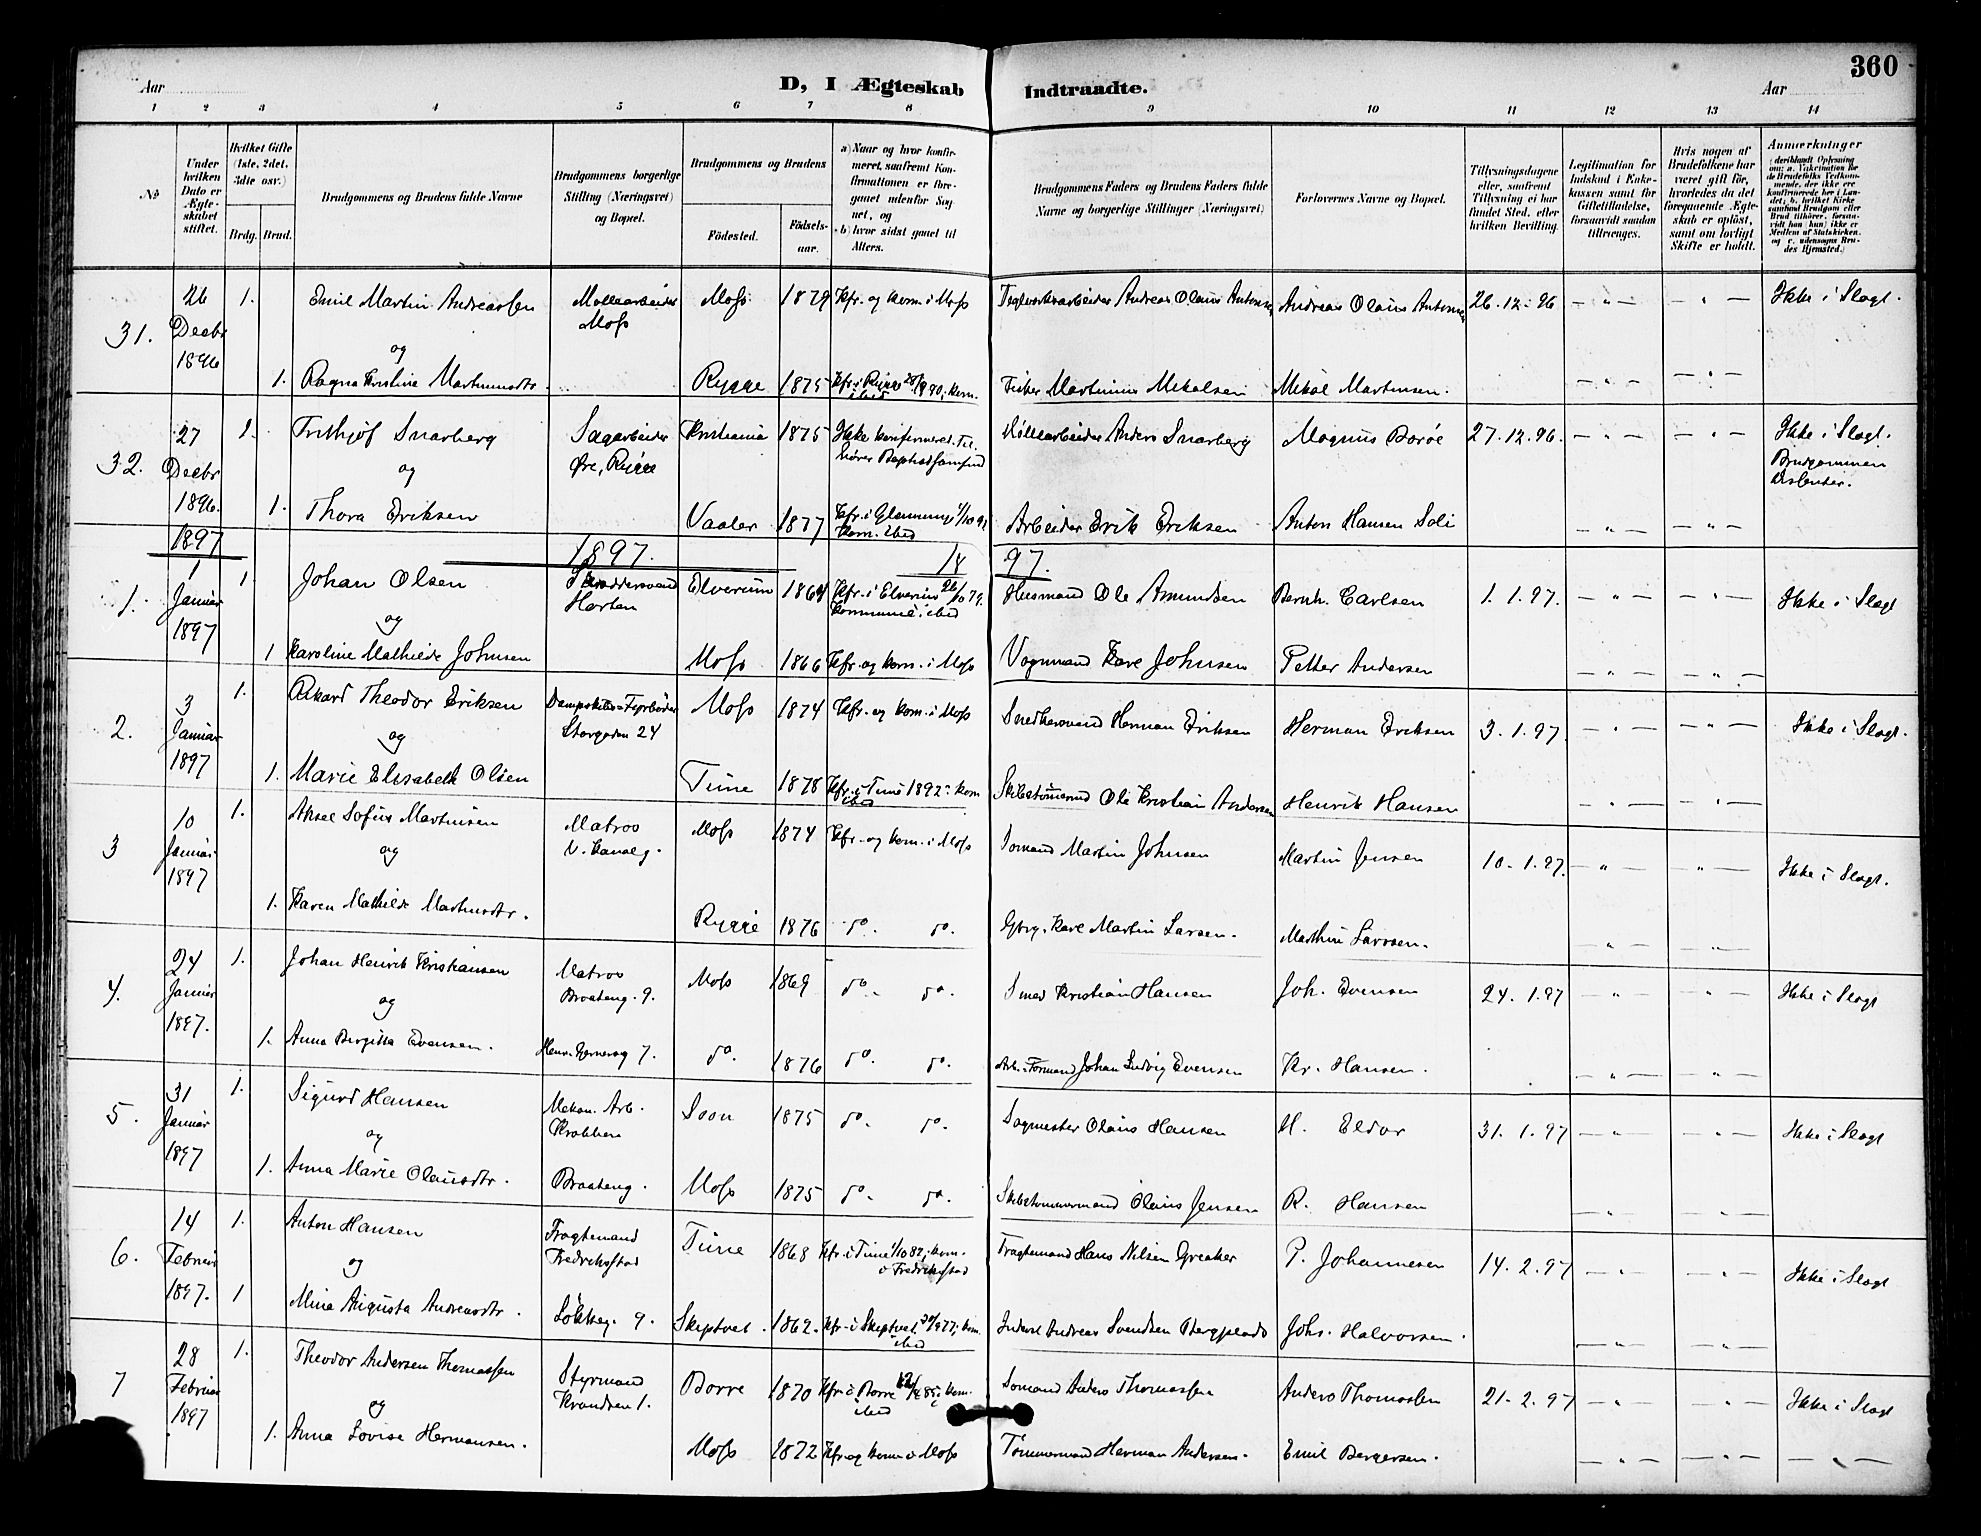 360
Aar D, I Ægteskab Indtraadte. Aar
1 2 3 4 5 6 7 8 9 10 11 12 13 14
№
Under hvilken Dato er Ægteskabet stiftet.
Hvilket Gifte (1ste, 2det, 3die osv.)
Brdg. Brud.
Brudgommens og Brudens fulde Navne
Brudgommens borgerlige Stilling (Næringsvei) og Bopæl.
Brudgommens og Brudens
Fødested. Fødselsaar.
a) Naar og hvor konfirmeret, saafremt Konfirmationen er foregaaet udenfor Sognet, og b) hvor sidst gaaet til Alters.
Brudgommens Faders og Brudens Faders fulde Navne og borgerlige Stillinger (Næringsvei)
Forlovernes Navne og Bopæl.
Tillysningsdagene eller, saafremt Tillysning ei har fundet Sted, efter hvilken Bevilling.
Legitimation for Indskud i Enkekassen samt for Giftetilladelse, forsaavidt saadan tiltrænges.
Hvis nogen af Brudefolkene har været gift før, hvorledes da det foregaaende Ægteskab er opløst, samt om lovligt Skifte er holdt.
Anmærkninger (deriblandt Oplysning om: a. Vakcination for de Brudefolks Vedkommende, der ikke ere konfirmerede her i Landet; b. hvilket Kirkesamfund Brudgom eller Brud tilhører, forsaavidt han (hun) ikke er Medlem af Statskirken, og c. udensogns Brudes Hjemsted.)
31. 26 Decbr 1896 1. Emil Martin Andreassen Møllearbeider Moss Moss 1879 Kfr. og kom. i Moss Teglverksarbeider Andreas Olaus Antonsen Andreas Olaus Antonsen 26.12.96 — „ — — „ — Ikke i Slægt.
og
1. Ragna Kristine Martinusdtr. Rygge 1875 Kfr. i Rygge 28/9 90, kom. ibid Fisker Martinius Mikalsen Mikal Martinsen. — „ — — „ —
32. 27 Decbr 1896. 1. Frithjof Snarberg Sagarbeider Øre, Rygge Kristiania 1875 Ikke konfirmeret. Tilhører Baptistsamfund Møllearbeider Anders Snarberg Magnus Borøe 27.12.96. — „ — — „ — Ikke i Slægt. Brudgommen Dissenter.
og
1. Thora Eriksen Vaaler 1877 Kfr. i Glemminge 1/10 91 Kom. ibid Arbeider Erik Eriksen Anton Hansen Soli — „ — — „ —
1897 1897. 18 97.
1. 1 Januar 1897 1. Johan Olsen Skræddersvend Horten Elverum 1864 Kfr. i Elverum 26/10 79. kommun. ibid Husmand Ole Amundsen Bernh. Carlsen 1.1.97. — „ — — „ — Ikke i Slægt
og
1 Karoline Mathilde Johnsen Moss 1866 Kfr. og kom. i Moss Vognmand Kare Johnsen Petter Andersen — „ — — „ —
2. 3 Januar 1897 1. Rikard Theodor Eriksen Dampskibs-Fyrbøder Storgaden 24 Moss 1874 Kfr. og kom. i Moss Snedkersvend Herman Eriksen Herman Eriksen 3.1.97. — „ — — „ — Ikke i Slægt.
og
1. Marie Elisabeth Olsen Tune 1878 Kfr. i Tune 1892, kom ibid Skibstømmermd Ole Kristian Andersen Henrik Hansen — „ — — „ —
3 10 Januar 1897 1. Aksel Sofus Martinsen Matros V. Kanalg. Moss 1874 Kfr. og kom. i Moss Sømand Martin Johnsen Martin Jensen 10.1.97. — „ — — „ — Ikke i Slægt.
og
1. Karen Mathilde Martinsdtr. Rygge 1876 do. do. Gbrg. Karl Martin Larsen. Marthin Larssen. — „ — — „ —
4. 24 Januar 1897. 1. Johan Henrik Kristiansen Matros Braateng. 9. Moss 1869 do. do. Smed Kristian Hansen Joh. Evensen 24.1.97 — „ — — „ — Ikke i Slægt
og
1. Anna Birgitta Evensen. Henr. Gernersg 7. do. 1876 do. do. Arb.-Formand Johan Ludvig Evensen Kr. Hansen. — „ — — „ —
5. 31 Januar 1897 1. Sigurd Hansen Mekan. Arb. Krabben Soon 1875 do. do. Sagmester Olaus Hansen H. Eldor 31.1.97 — „ — — „ — Ikke i Slægt
og
1. Anna Marie Olausdtr. Braateng. Moss 1875 do. do. Skibstømmermand Olaus Jensen R. Hansen — „ — — „ —
6. 14 Februar 1897. 1. Anton Hansen Fragtemand Fredrikstad Tune 1868 Kfr. i Tune 1/10 82, kom. i Fredrikstad Fragtemand Hans Nilsen Greaker P. Johannesen 14.2.97 — „ — — „ — Ikke i Slægt
og
1 Mina Augusta Andreasdtr. Løkkeg. 9. Skiptvet. 1862. Kfr. i Skiptvet 30/9 77, kom. ibid Inderst Andreas Svendsen Bergplads Johs. Halvorsen. — „ — — „ —
7 28 Februar 1897 1. Theodor Andersen Thomassen Styrmand Krandsen 1. Borre 1870 Kfr. i Borre 85, kom. ibid Sømand Anders Thomassen Anders Thomassen 21.2.97 — „ — — „ — Ikke i Slægt
og
1. Anna Lovise Hermansen. Moss 1872 Kfr og kom i Moss Tømmermand Herman Andersen. Emil Bergersen. — „ — — „ — — „ —